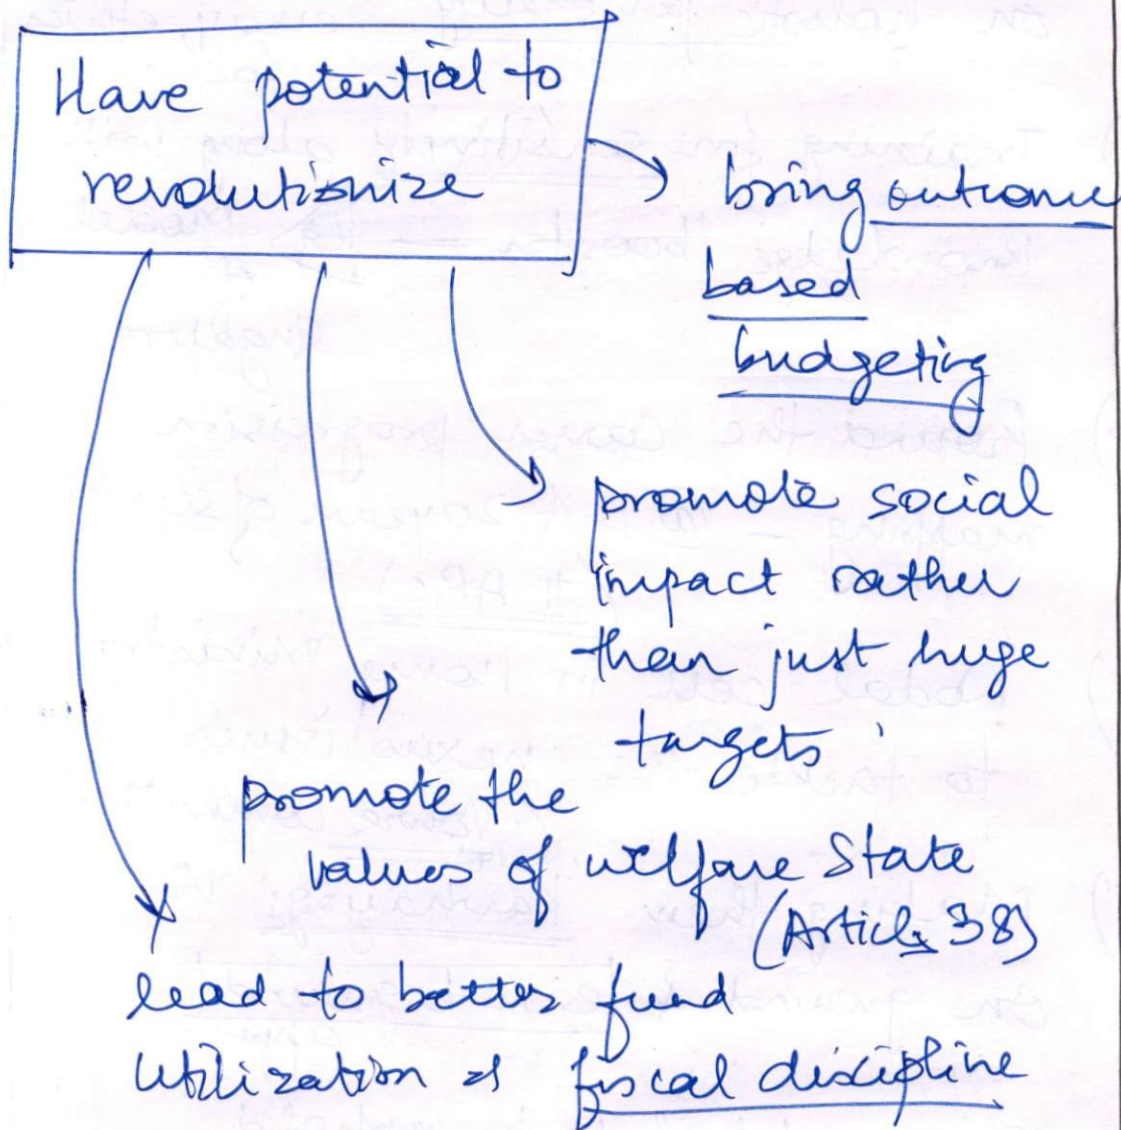 Have potential to
revolutionize
bring outcome
based
budgeting
promote social
impact rather
than just huge
targets
promote the
values of welfare State
(Article 38)
lead to better fund
utilization & fiscal discipline